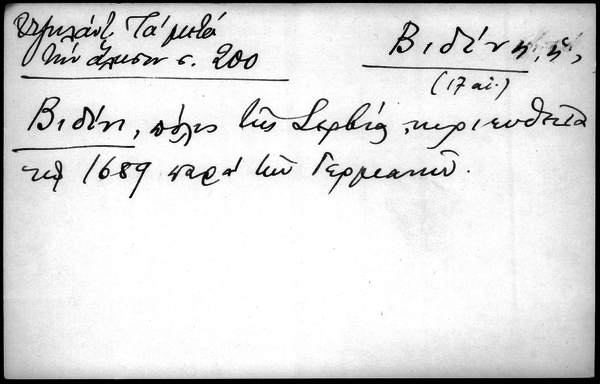 Υψηλάντ. Τα μετά
την άλωσιν σ. 200
Βιδύνη, ἡ,
(17 αἰ.)
Βιδύνη, πόλις τῆς Σερβίας κυριευθεῖσα
τῷ 1689 παρά τῶν Γερμανῶν.